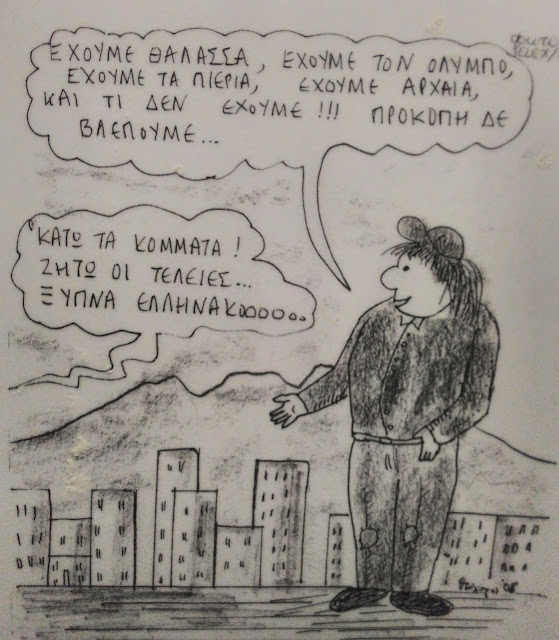 ΕΧΟΥΜΕ ΘΑΛΑΣΣΑ, ΕΧΟΥΜΕ ΤΟΝ ΟΛΥΜΠΟ,
ΕΧΟΥΜΕ ΤΑ ΠΙΕΡΙΑ, ΕΧΟΥΜΕ ΑΡΧΑΙΑ,
ΚΑΙ ΤΙ ΔΕΝ ΕΧΟΥΜΕ !!! ΠΡΟΚΟΠΗ ΔΕ
ΒΛΕΠΟΥΜΕ...
ΚΑΤΩ ΤΑ ΚΟΜΜΑΤΑ !
ΖΗΤΩ ΟΙ ΤΕΛΕΙΕΣ...
ΞΥΠΝΑ ΕΛΛΗΝΑΚΟΟΟΟΟ..
'08